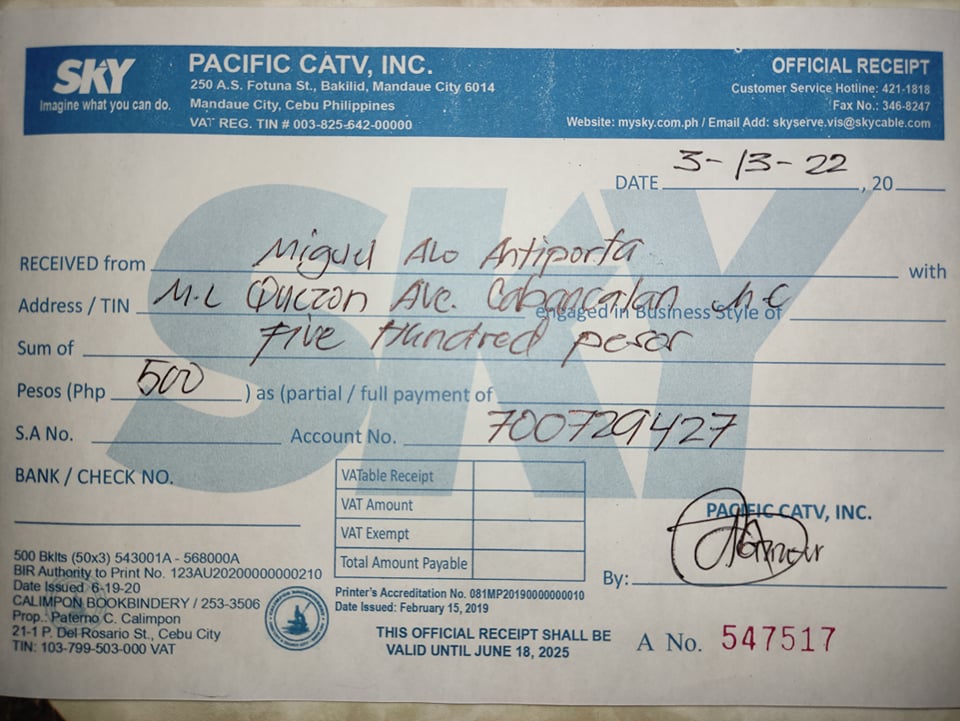 SKY
Imagine what you can do.
PACIFIC CATV, INC.
250 A.S. Fotuna St., Bakilid, Mandaue City 6014
Mandaue City, Cebu Philippines
VAT REG. TIN # 003-825-642-00000
OFFICIAL RECEIPT
Customer Service Hotline: 421-1818
Fax No.: 346-8247
Website: mysky.com.ph / Email Add: skyserve.vis@skycable.com
DATE 3-13-22, 20
RECEIVED from Miguel Alo Antiporta with
Address / TIN M.L Quezon Ave. Cabancalan M.C engaged in Business Style of
Sum of Five Hundred pesos
Pesos (Php 500 ) as (partial / full payment of
S.A No. Account No. 700729427
BANK / CHECK NO.
VATable Receipt
VAT Amount
VAT Exempt
Total Amount Payable
PACIFIC CATV, INC.
By:
500 Bklts (50x3) 543001A - 568000A
BIR Authority to Print No. 123AU20200000000210
Date Issued 6-19-20
CALIMPON BOOKBINDERY / 253-3506
Prop.: Paterno C. Calimpon
21-1 P. Del Rosario St., Cebu City
TIN: 103-799-503-000 VAT
Printer's Accreditation No. 081MP20190000000010
Date Issued: February 15, 2019
THIS OFFICIAL RECEIPT SHALL BE
VALID UNTIL JUNE 18, 2025
A No. 547517